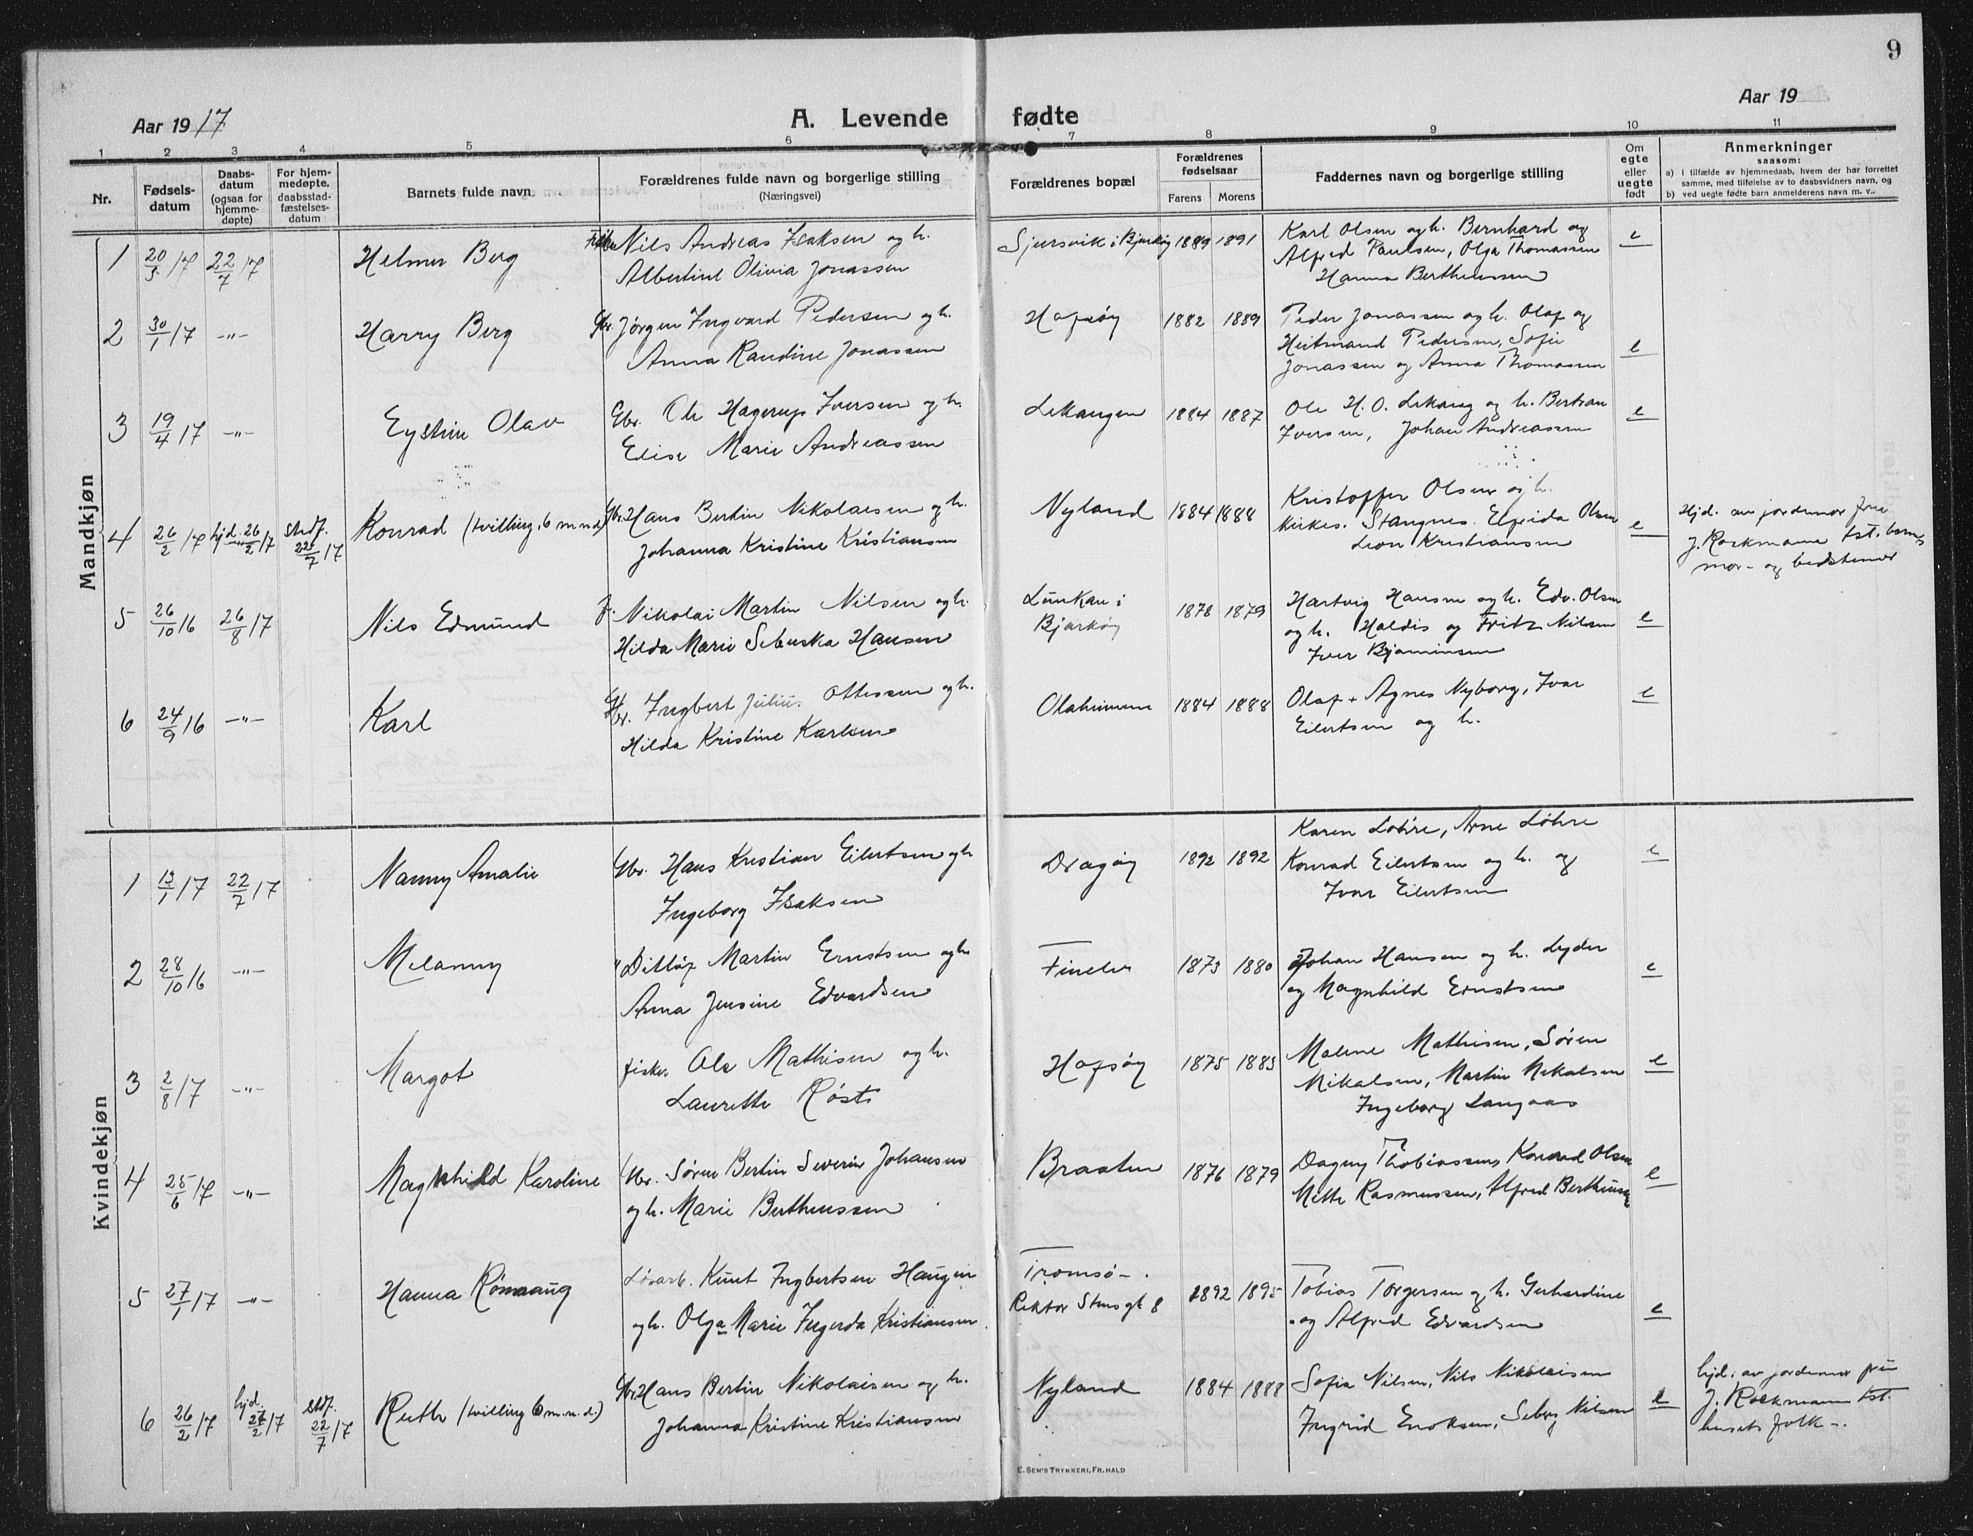 9
Aar 1917
A. Levende fødte
Aar 19
1 2 3 4 5 6 7 8 9 10 11
Nr.
Fødsels-
datum
Daabs-
datum
(ogsaa for
hjemme-
døpte)
For hjem-
medøpte,
daabsstad-
fæstelses-
datum
Barnets fulde navn
Forældrenes fulde navn og borgerlige stilling
(Næringsvei)
Forældrenes bopæl
Forældrenes
fødselsaar
Farens Morens
Faddernes navn og borgerlige stilling
Om
egte
eller
uegte
født
Anmerkninger
saasom:
a) i tilfælde av hjemmedaab, hvem der har forrettet
samme, med tilføielse av to daabsvidners navn, og
b) ved uegte fødte barn anmelderens navn m. v..
Mandkjøn
1 20/5 17 22/7 17 Helmer Berg Nils Andreas Isaksen og h. Sjursvik i Bjarkøy 1889 1891 Karl Olsen og h. Bernhard og e
Albertine Olivia Jonassen Alfred Paulsen, Olga Thomassen
Hanna Bertheussen
2 30/1 17 -"- Harry Berg Gbr. Jørgen Ingvard Pedersen og h. Hofsøy 1882 1889 Peder Jonassen og h. Olaf og e
Anna Randine Jonassen Heitmand Pedersen, Sofie
Jonassen og Anna Thomassen
3 19/4 17 -"- Eystein Olav Gbr. Ole Hagerup Iversen og h. Lekangen 1884 1887 Ole H. O. Lekang og h. Bertran e
Elise Marie Andreassen Iversen, Johan Andreassen
4 26/2 17 hjd. 26/2 17 stadf. 22/7 17 Konrad (tvilling, 6 m.n.d.) Gbr. Hans Bertin Nikolaisen og h. Nyland 1884 1888 Kristoffer Olsen og h. e Hjd. av jordemor frue
Johanna Kristine Kristiansen kirkes. Stangnes. Elfrida Olsen J. Rockmann tst. barnets
Leon Kristiansen mor- og bedstemor
5 26/10 16 26/8 17 Nils Edmund F. Nikolai Martin Nilsen og h. Lunkan i 1878 1879 Hartvig Hansen og h. Edv. Olsen e
Hilda Marie Sebuska Hansen Bjarkøy og h. Haldis og Fritz Nilsen
Iver Bjaminsen
6 24/9 16 -"- Karl Gbr. Ingbert Julius Ottessen og h. Olaheimen 1884 1888 Olaf + Agnes Nyborg, Ivar e
Hilda Kristine Karlsen Eilertsen og h.
Kvindekjøn
1 17 22/7 17 Nanny Amalie Gbr. Hans Kristian Eilertsen og h. Dragøy 1892 1892 Karen Løhre, Arne Løhre e
Ingeborg Isaksen Konrad Eilertsen og h. og
Ivar Eilertsen
2 28/10 16 -"- Melanny " Ditløf Martin Ernstsen og h. Finelv 1873 1880 Johan Hansen og h. Lyder e
Anna Jensine Edvardsen og Magnhild Ernstsen
3 2/8 17 -"- Margot fisker Ole Mathisen og h. Hofsøy 1875 1883 Malene Mathisen, Søren e
Laurette Røst Mikalsen, Martin Mikalsen
Ingeborg Langaas
4 25/6 17 -"- Magnhild Karoline Gbr. Søren Bertin Severin Johansen Braaten 1876 1879 Dagny Thobiassen, Konrad Olsen e
og h. Marie Bertheussen Mette Rasmussen, Alfred Bertheussen
5 27/1 17 -"- Hanna Rønnaug Løsarb. Knut Ingbertsen Haugen Tromsø - 1892 1895 Tobias Torgersen og h. Gerhardine e
og h. Olga Marie Ingerda Kristiansen Rektor Stensgt 8 og Alfred Edvardsen
6 26/2 17 hjd. 27/2 17 stdf. 22/7 17 Ruth (tvilling 6 m.n.d.) Gbr. Hans Bertin Nikolaisen og h. Nyland 1884 1888 Sofie Nilsen, Nils Nikolaisen e hjd. av jordemor fru
Johanna Kristine Kristiansen Ingrid Enoksen, Seberg Nilsen J. Rockmann tst.
husets folk -.
E. SEM'S TRYKKERI, FR.HALD